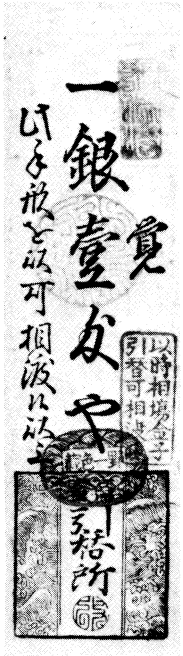 覚
一銀壹匁也
此手形を以可相渡候以上
以時相場金子
引替可相
引替所